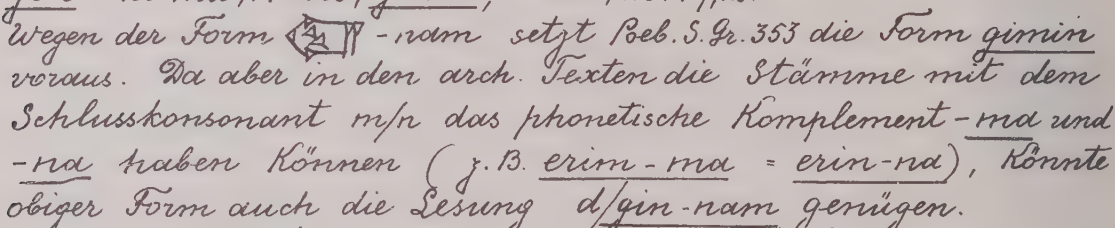 Wegen der Form -nam setzt Poeb. S. Gr. 353 die Form gimin
voraus. Da aber in den arch. Texten die Stämme mit dem
Schlusskonsonant m/n das phonetische Komplement -ma und
-na haben können (z.B. erim-ma = erin-na), könnte
obiger Form auch die Lesung d/gin-nam genügen.